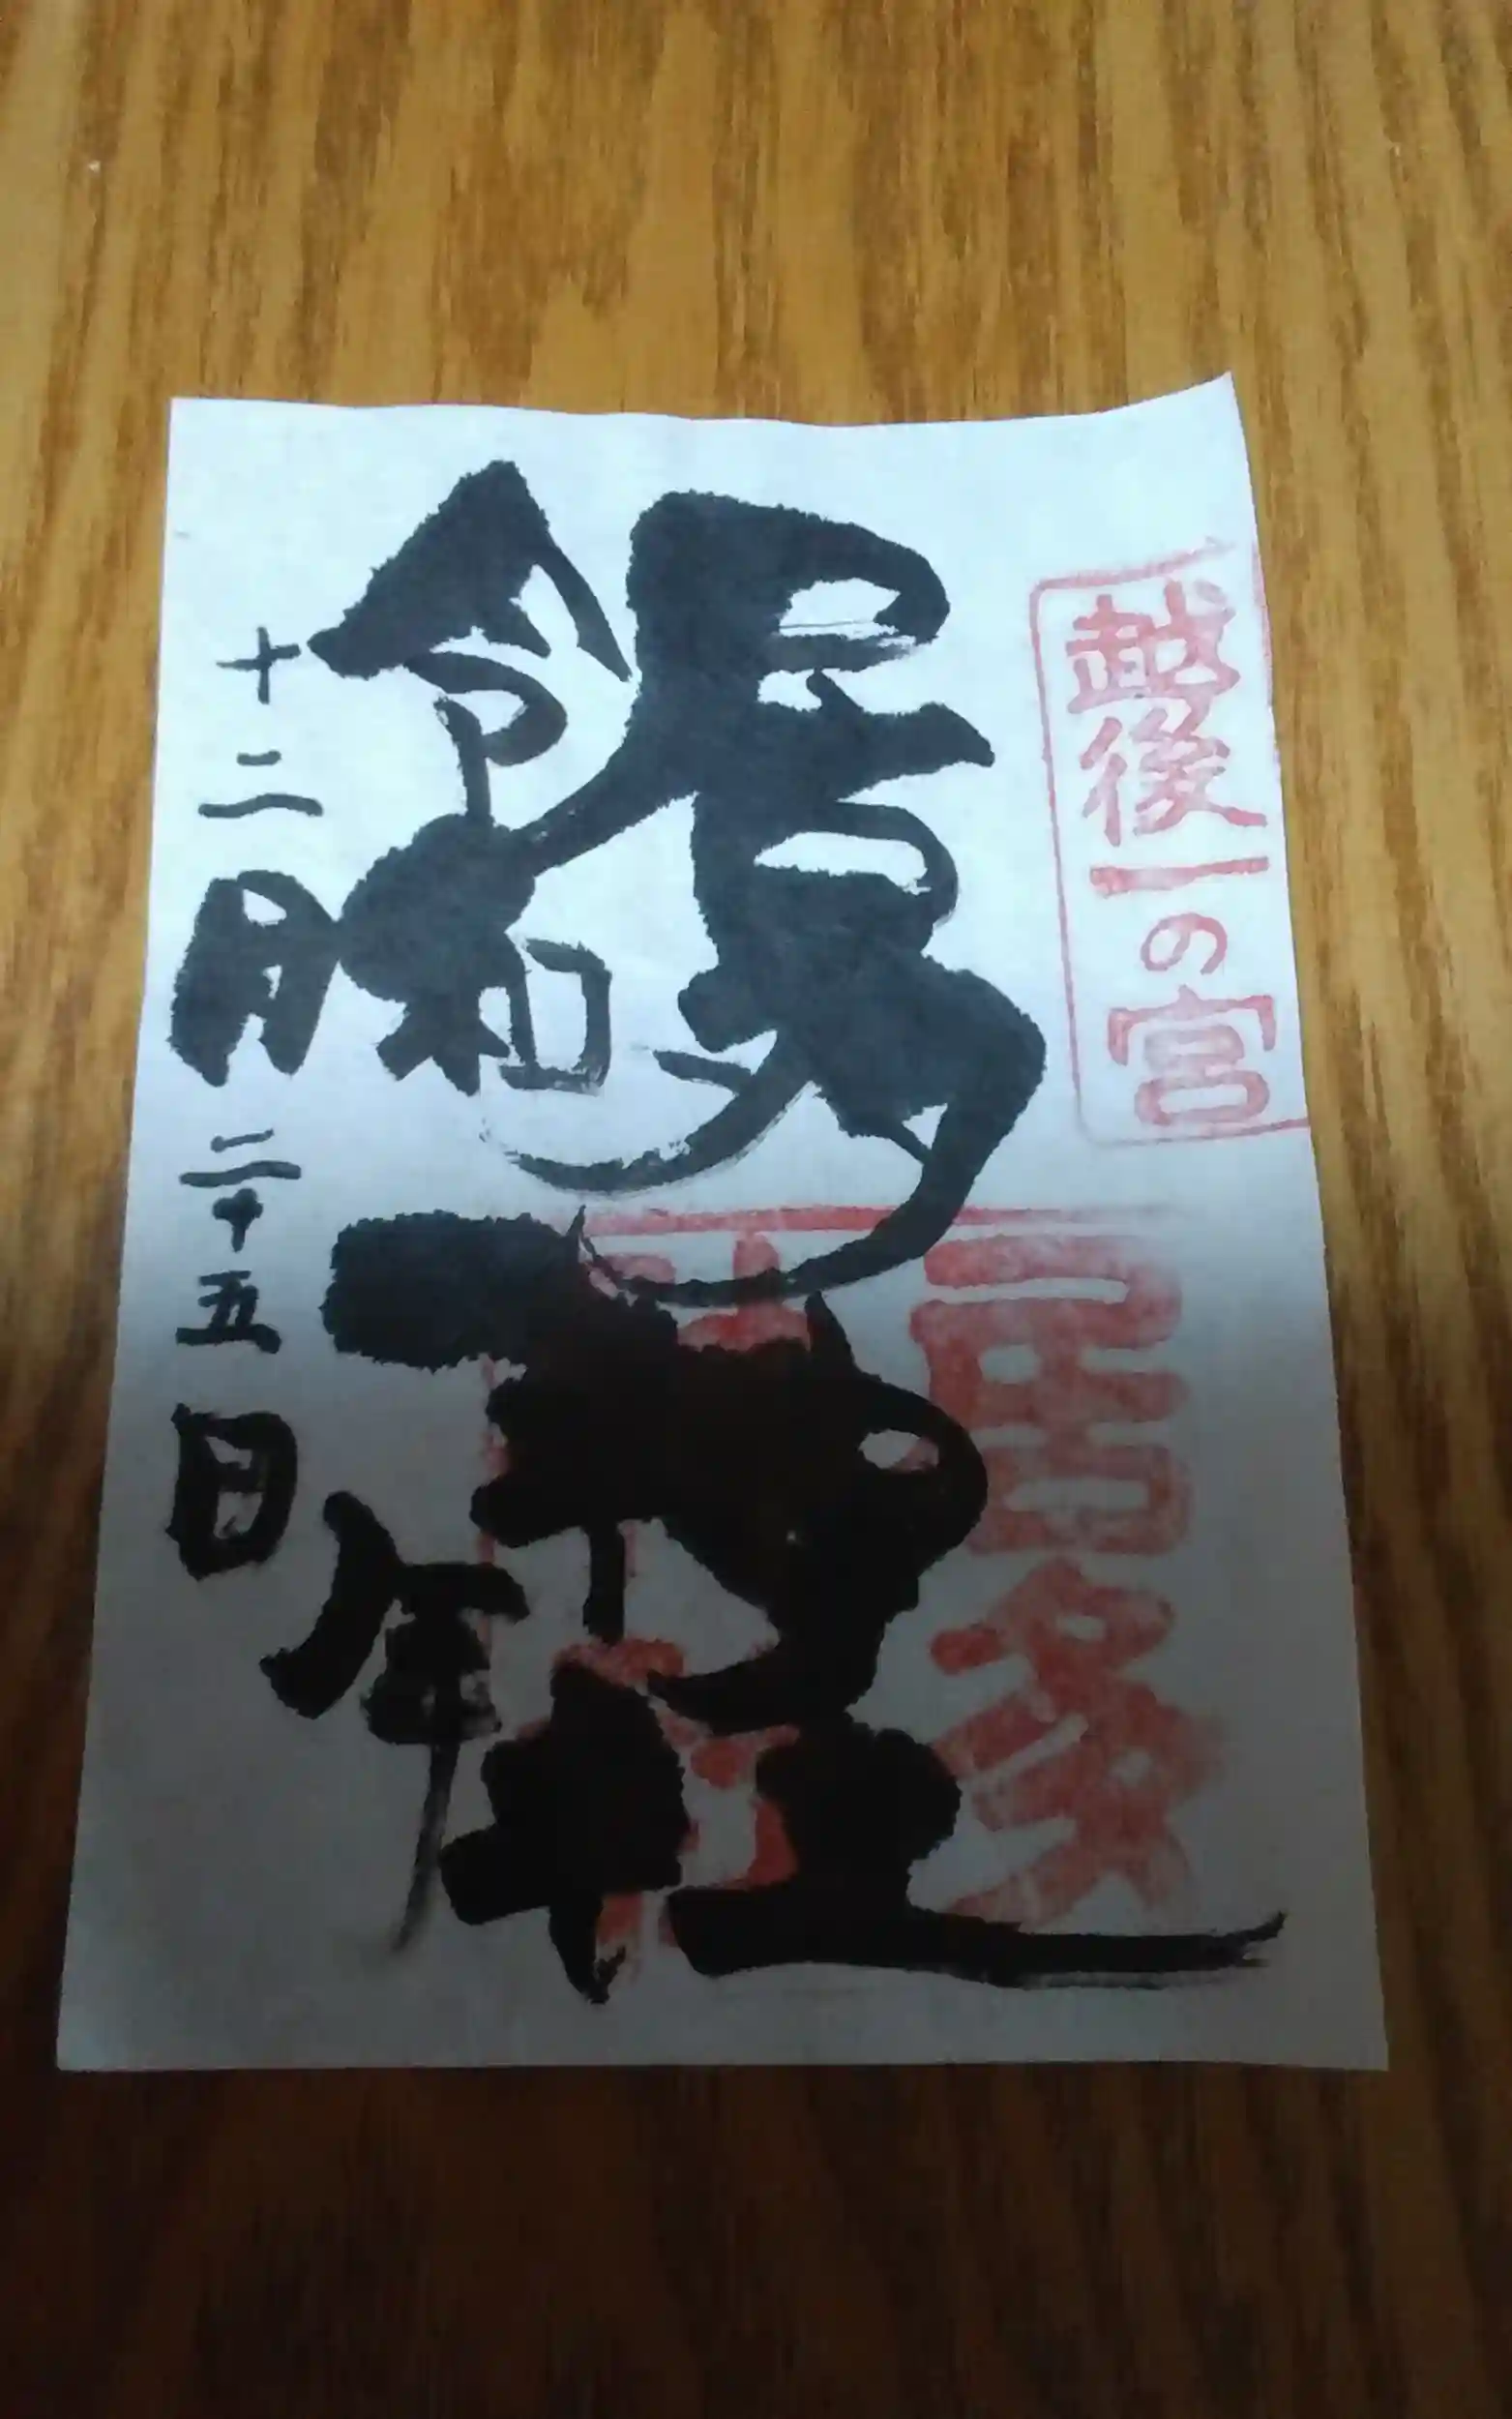 越後一の宮
居多
神社
居多神社
令和年
十二月二十五日